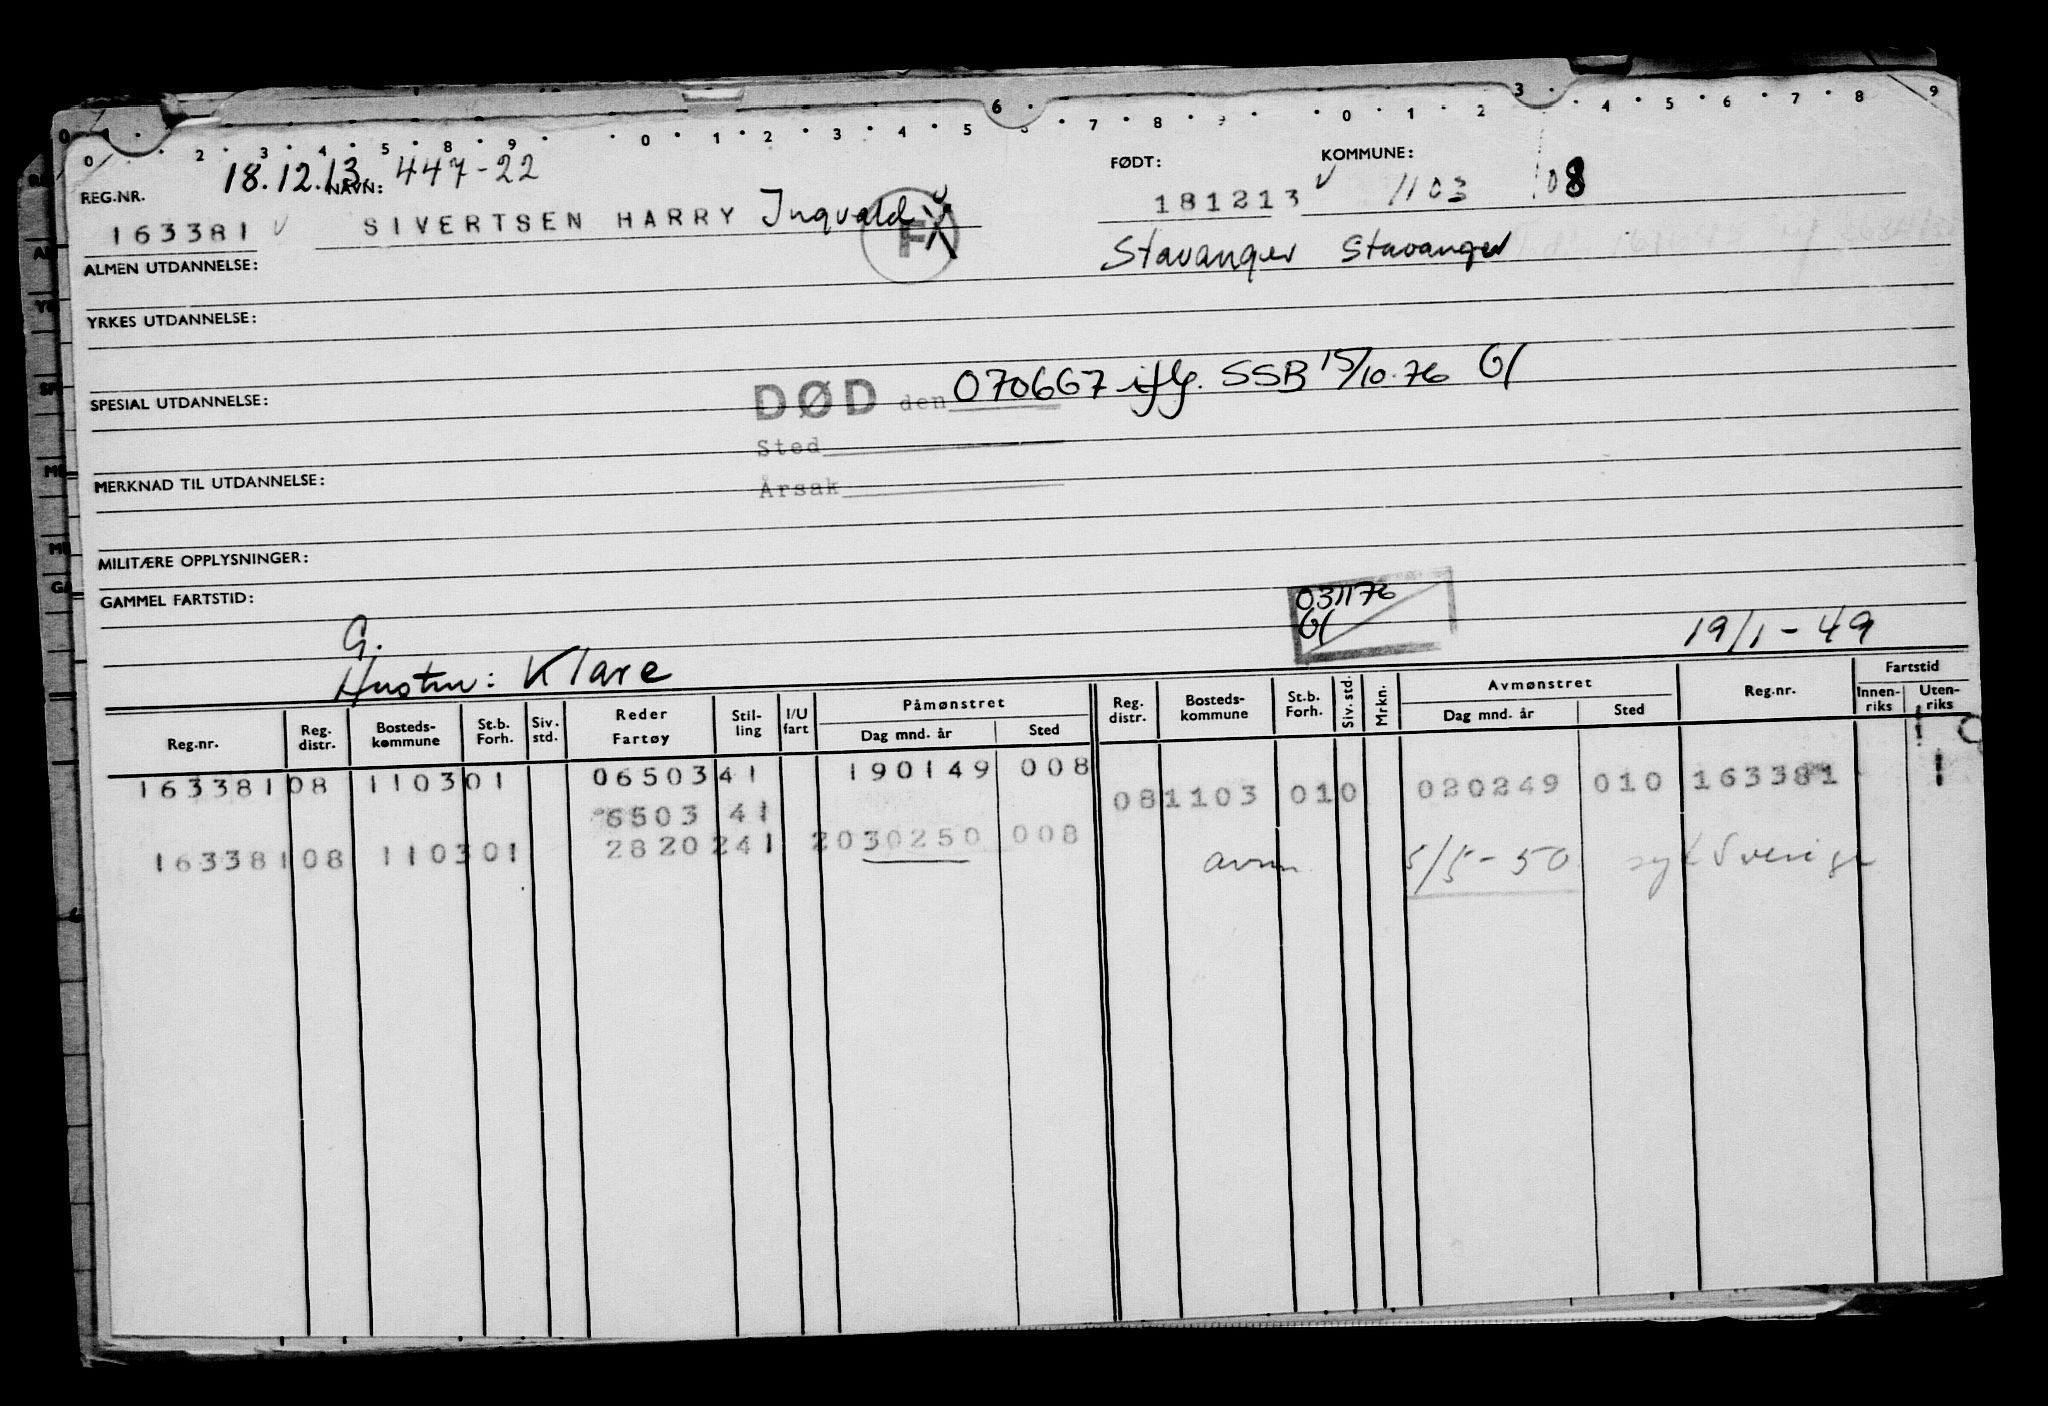 0 . 2 . 3 . 4 . 5 . 8 . 9 . 0 . 1 . 2 . 3 . 4 . 5 6 . 7 . 8 . 9 . 0 . 1 . 2 3 . 4 . 5 . 6 . 7 . 8 9
REG.NR. 18.12.13. NAVN: 447-22 FØDT: KOMMUNE:
163381 SIVERTSEN HARRY Ingvald F 181213 1103 08
ALMEN UTDANNELSE: Stavanger Stavanger
YRKES UTDANNELSE:
SPESIAL UTDANNELSE: DØD den 070667 iflg. SSB 15/10.76 G/
Sted
MERKNAD TIL UTDANNELSE: Årsak
MILITÆRE OPPLYSNINGER:
GAMMEL FARTSTID: 031176
G/
G. 19/1-49
Hustru: Klare
Reg.nr. Reg. distr. Bosteds-kommune St.b. Forh. Siv. std. Reder Fartøy Stil-ling I/U fart Påmønstret Dag mnd. år Sted Reg. distr. Bosteds-kommune St.b. Forh. Siv. std. Mrkn. Avmønstret Dag mnd. år Sted Reg.nr. Fartstid Innen-riks Uten-riks
163381 08 1103 01 06503 41 190149 008 08 1103 01 0 020249 010 163381 1
6503 41
163381 08 1103 01 28202 41 2 030250 008 avm. 5/5-50 syk Sverige